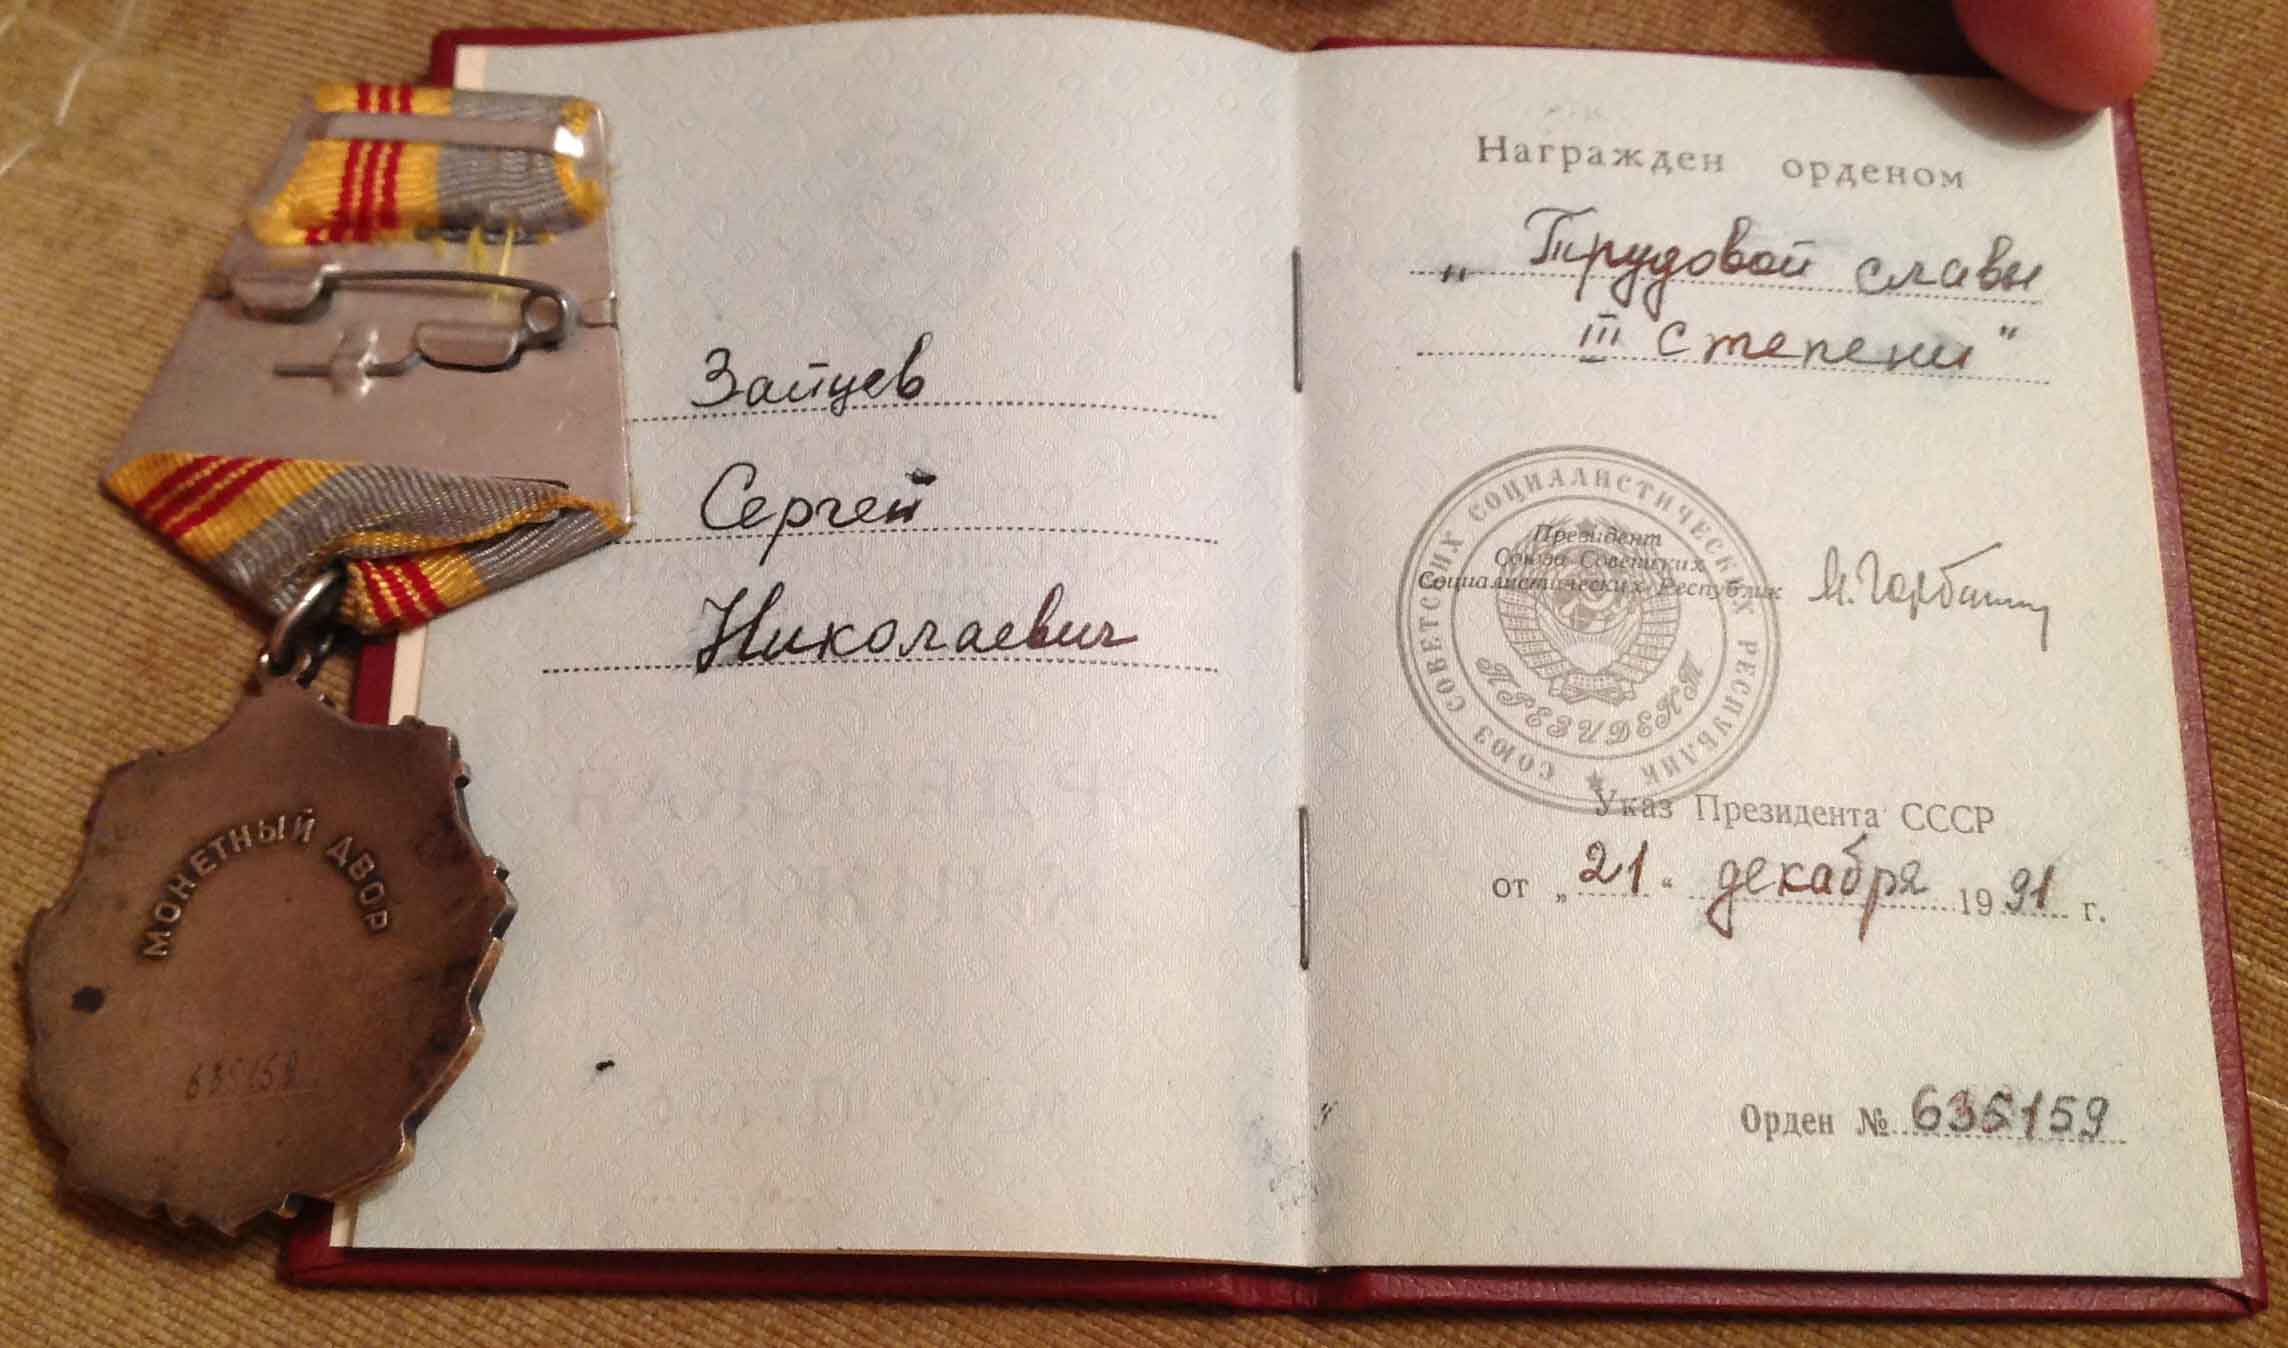 МОНЕТНЫЙ ДВОР
635159
Зайцев
Сергей
Николаевич
Награжден орденом
„Трудовой славы
III степени"
СОЮЗ СОВЕТСКИХ СОЦИАЛИСТИЧЕСКИХ РЕСПУБЛИК
ПРЕЗИДЕНТ
Президент
Союза Советских
Социалистических Республик
М. Горбачев
Указ Президента СССР
от „21" декабря 1991 г.
Орден № 635159